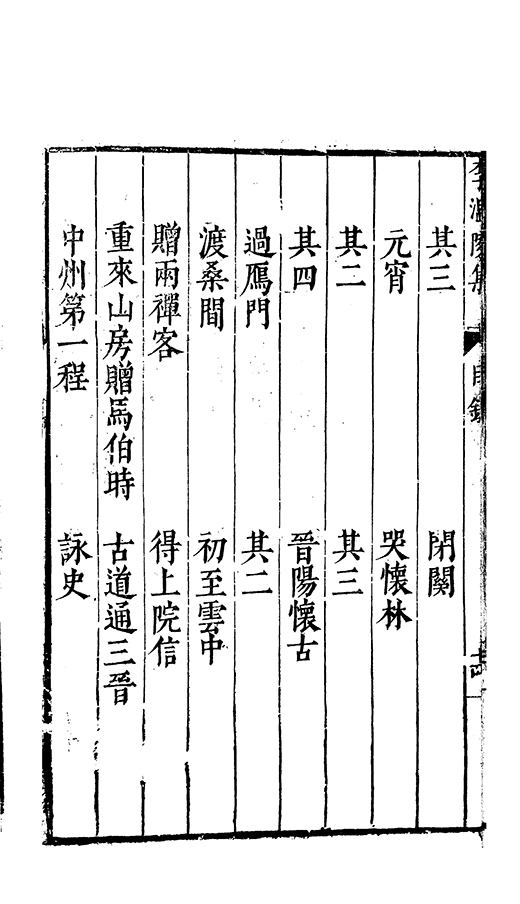 李溫陵集 目錄
其三 閉關
元宵 哭懷林
其二 其三
其四 晉陽懷古
過鴈門 其二
渡桑間 初至雲中
贈兩禪客 得上院信
重來山房贈馬伯時 古道通三晉
中州第一程 詠史